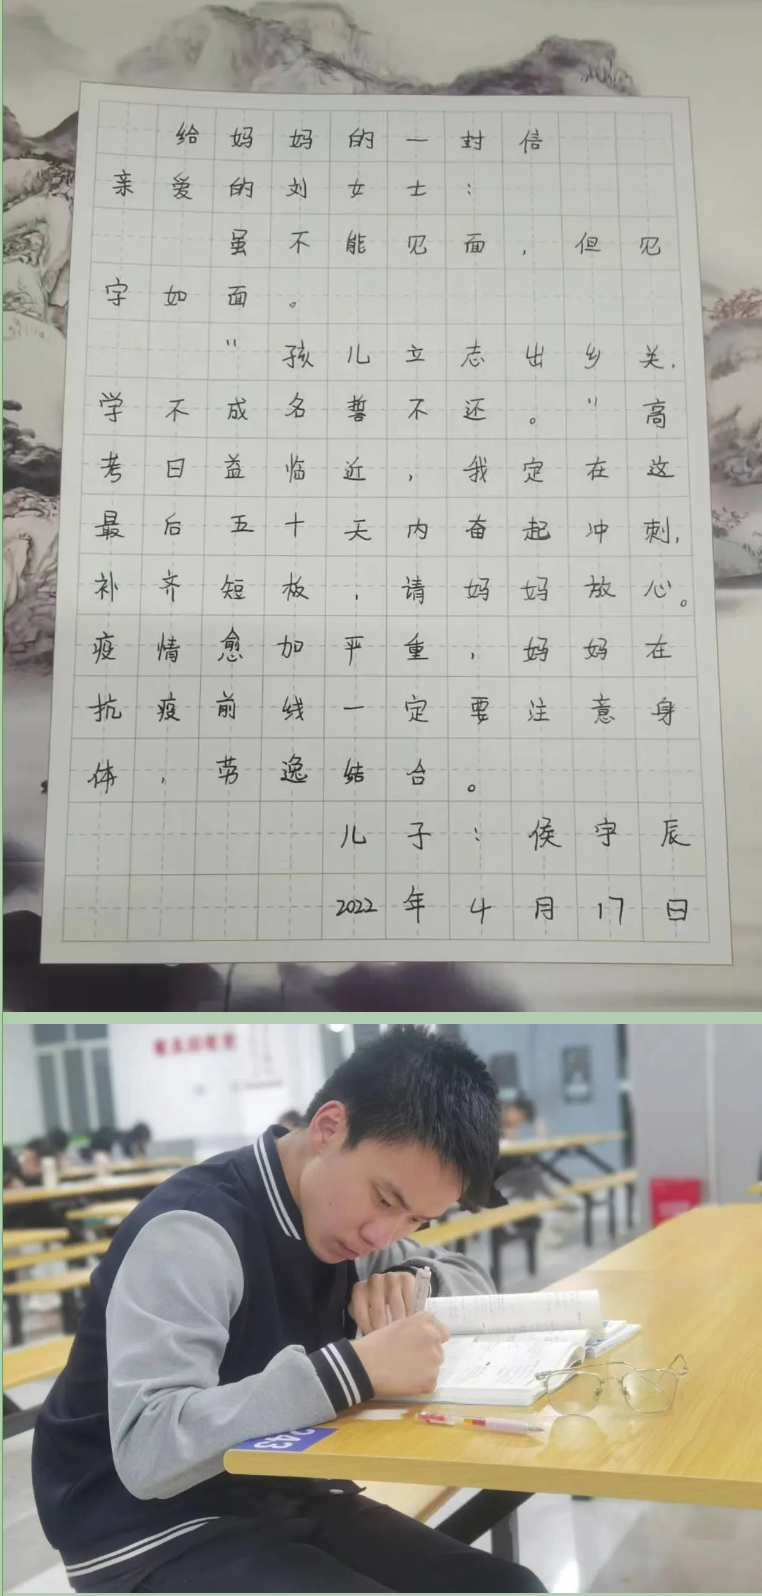 给妈妈的一封信
亲爱的刘女士：
虽不能见面，但见
字如面。
"孩儿立志出乡关，
学不成名誓不还。"高
考日益临近，我定在这
最后五十天内奋起冲刺，
补齐短板，请妈妈放心。
疫情愈加严重，妈妈在
抗疫前线一定要注意身
体，劳逸结合。
儿子：侯宇辰
2022年4月17日
243